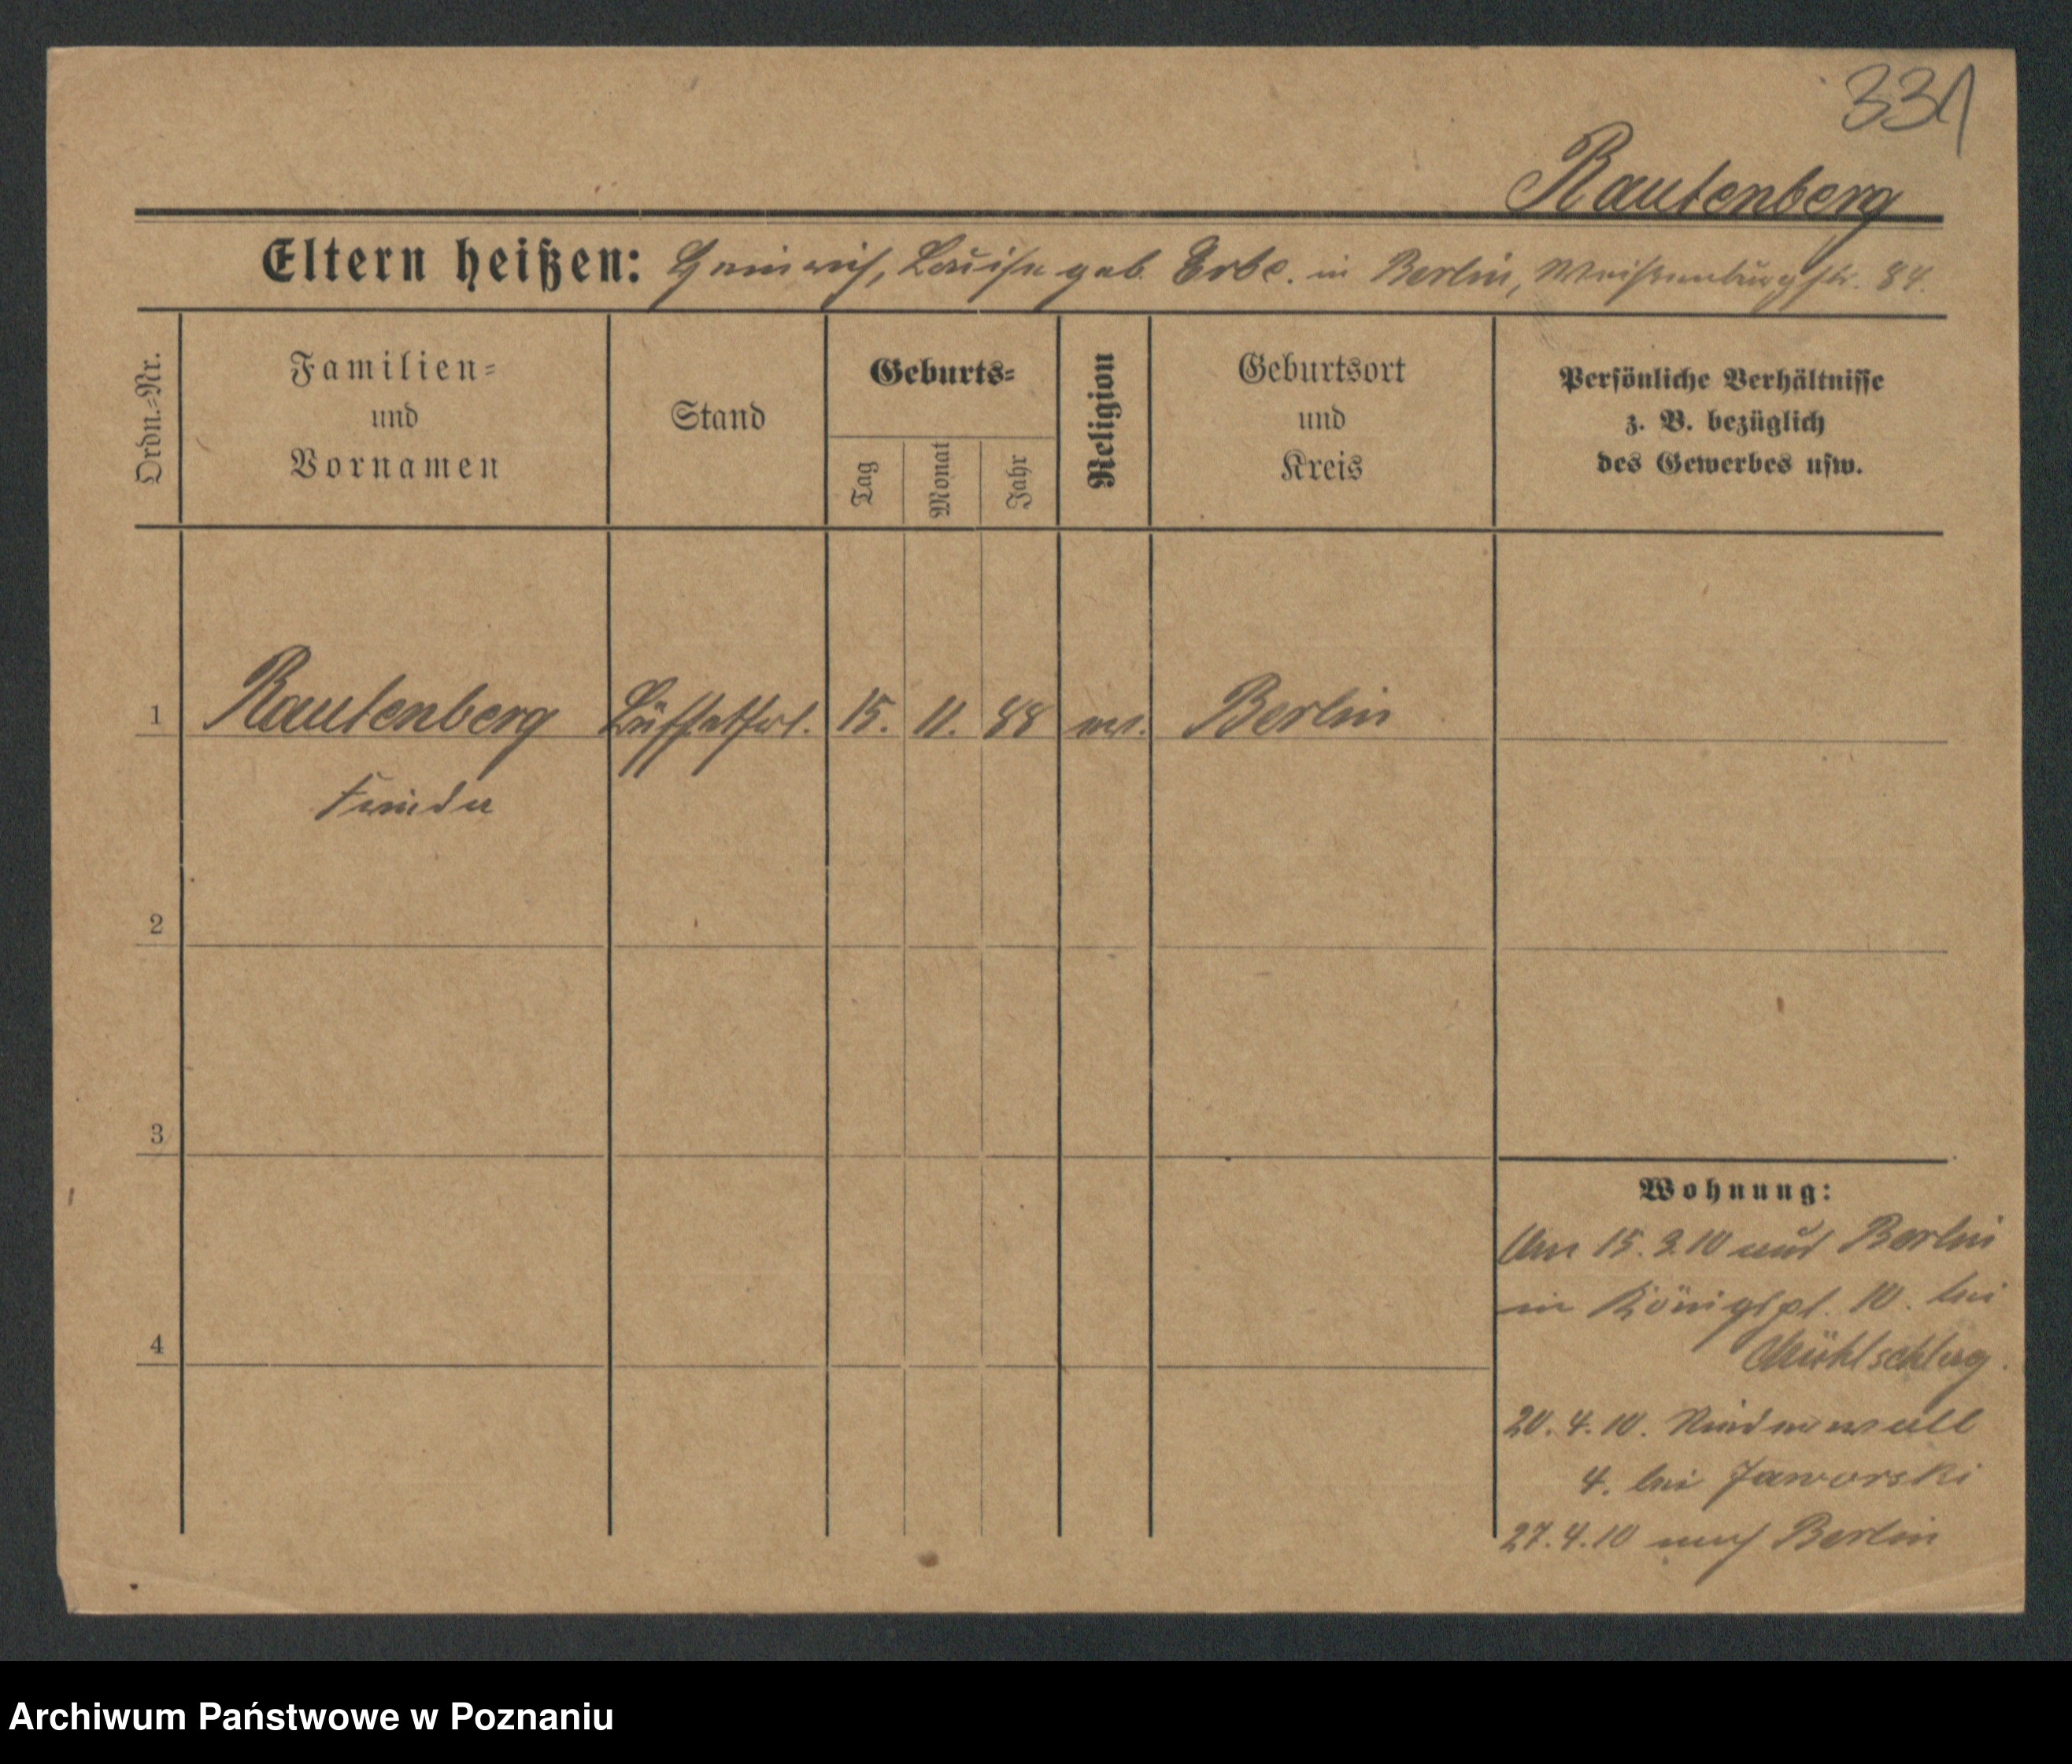 331
Rautenberg
Eltern heißen: Heinrich, Louise geb. Erbe. in Berlin, Weißenburgstr. 84.
Ordn.-Nr.
Familien-
und
Vornamen
Stand
Geburts-
Tag
Monat
Jahr
Religion
Geburtsort
und
Kreis
Persönliche Verhältnisse
z. B. bezüglich
des Gewerbes usw.
1 Rautenberg Büffetfrl. 15. 11. 88 ev. Berlin
Frieda
2
3
4
Wohnung:
Am 15. 3. 10 aus Berlin
in Königspl. 10. bei
Mühlschlag.
20. 4. 10.
4. bei Jaworski
27. 4. 10 nach Berlin
Archiwum Państwowe w Poznaniu